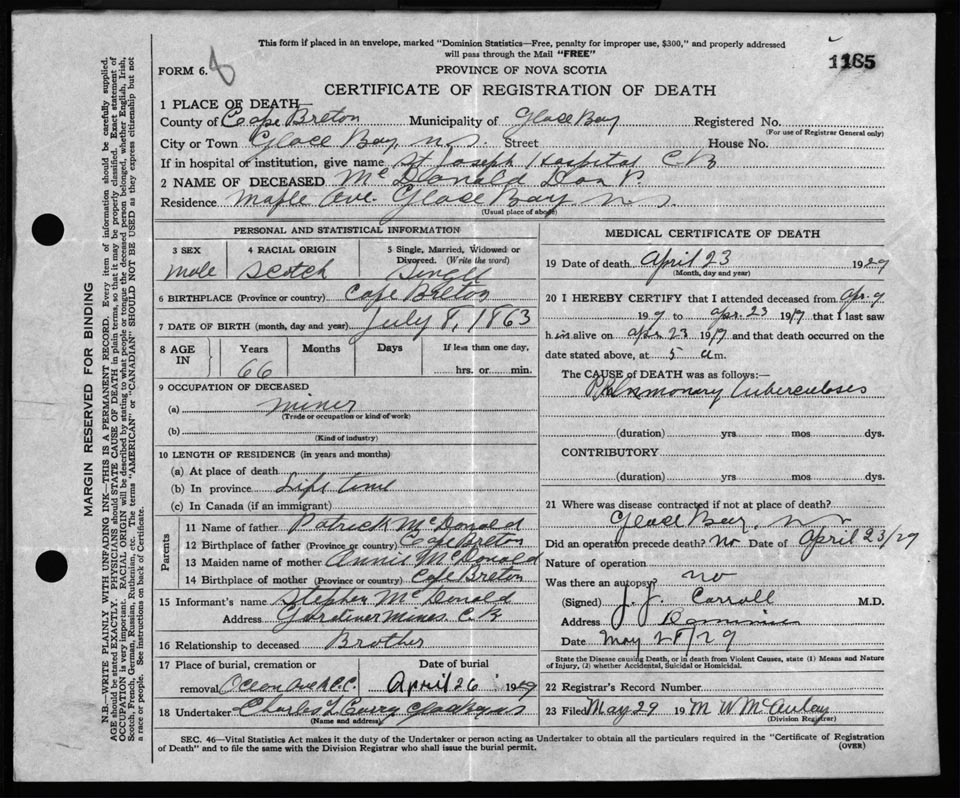 This form if placed in an envelope, marked "Dominion Statistics—Free, penalty for improper use, $300," and properly addressed
will pass through the Mail "FREE"
1185
FORM 6.
PROVINCE OF NOVA SCOTIA
CERTIFICATE OF REGISTRATION OF DEATH
1 PLACE OF DEATH—
County of Cape Breton Municipality of Glace Bay Registered No.
(For use of Registrar General only)
City or Town Glace Bay, N.S. Street House No.
If in hospital or institution, give name St Joseph Hospital C.B.
2 NAME OF DECEASED McDonald Dan P.
Residence Maple Ave. Glace Bay N.S.
(Usual place of abode)
PERSONAL AND STATISTICAL INFORMATION
3 SEX male
4 RACIAL ORIGIN Scotch
5 Single, Married, Widowed or Divorced. (Write the word) Single
6 BIRTHPLACE (Province or country) Cape Breton
7 DATE OF BIRTH (month, day and year) July 8, 1863
8 AGE IN Years Months Days If less than one day,
66 hrs. or min.
9 OCCUPATION OF DECEASED
(a) miner
(Trade or occupation or kind of work)
(b)
(Kind of industry)
10 LENGTH OF RESIDENCE (in years and months)
(a) At place of death
(b) In province Life time
(c) In Canada (if an immigrant)
Parents
11 Name of father Patrick McDonald
12 Birthplace of father (Province or country) Cape Breton
13 Maiden name of mother Annie McDonald
14 Birthplace of mother (Province or country) Cape Breton
15 Informant's name Stephen McDonald
Address Gardiner Mines. C.B.
16 Relationship to deceased Brother
17 Place of burial, cremation or Date of burial
removal Ocean Ave R.C.C. April 26 1929
18 Undertaker Charles L Curry
(Name and address)
MEDICAL CERTIFICATE OF DEATH
19 Date of death April 23 1929
(Month, day and year)
20 I HEREBY CERTIFY that I attended deceased from Apr. 9
19 9 to Apr. 23 19 that I last saw
him alive on Apr. 23 19 and that death occurred on the
date stated above, at 5 a m.
The CAUSE of DEATH was as follows:—
Pulmonary tuberculoses
(duration) yrs mos dys.
CONTRIBUTORY
(duration) yrs. mos. dys.
21 Where was disease contracted if not at place of death?
Glace Bay, N.S.
Did an operation precede death? No Date of April 23/29
Nature of operation
Was there an autopsy? no
(Signed) J. J. Carroll M.D.
Address Dominion
Date May 28/29
State the Disease causing Death, or in death from Violent Causes, state (1) Means and Nature
of Injury, (2) whether Accidental, Suicidal or Homicidal.
22 Registrar's Record Number
23 Filed May 29 19 M W McAulay
(Division Registrar)
SEC. 46—Vital Statistics Act makes it the duty of the Undertaker or person acting as Undertaker to obtain all the particulars required in the "Certificate of Registration
of Death" and to file the same with the Division Registrar who shall issue the burial permit.
(OVER)
MARGIN RESERVED FOR BINDING
N.B.—WRITE PLAINLY WITH UNFADING INK—THIS IS A PERMANENT RECORD. Every item of information should be carefully supplied.
AGE should be stated EXACTLY. PHYSICIANS should STATE CAUSE OF DEATH in plain terms, so that it may be properly classified. Exact statement of
OCCUPATION is very important. RACIAL ORIGIN will be described by stating to what people or tongue the deceased person belonged, whether English, Irish,
Scotch, French, German, Russian, Ruthenian, etc. The terms "AMERICAN" or "CANADIAN" SHOULD NOT BE USED as they express citizenship but not
a race or people. See instructions on back of Certificate.